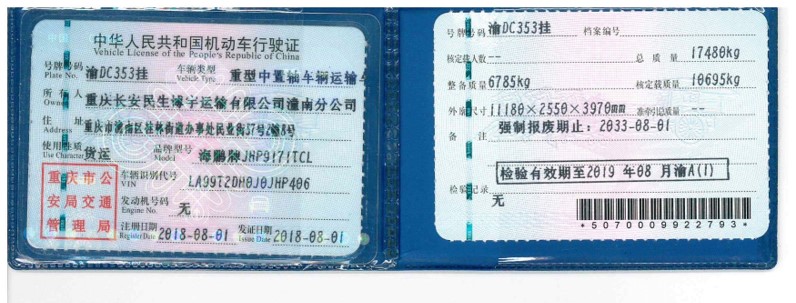 中华人民共和国机动车行驶证
Vehicle License of the People's Republic of China
号牌号码 渝DC353挂 车辆类型 重型中置轴车辆运输
Plate No. Vehicle Type
所有人 重庆长安民生博宇运输有限公司潼南分公司
Owner
住址
Address 重庆市潼南区桂林街道办事处民业街57号2幢8号
使用性质 货运 品牌型号 海鹏牌JHP9171TCL
Use Character Model
重庆市公安局交通管理局
车辆识别代号 LA99T2DH0J0JHP406
VIN
发动机号码 无
Engine No.
注册日期 2018-08-01 发证日期 2018-08-01
Register Date Issue Date
号牌号码 渝DC353挂 档案编号
核定载人数 -- 总质量 17480kg
整备质量 6785kg 核定载质量 10695kg
外廓尺寸 11180×2550×3970mm 准牵引总质量 --
备注 强制报废期止:2033-08-01
检验有效期至2019 年08 月渝A(1)
检验记录
无
*5070009922793*